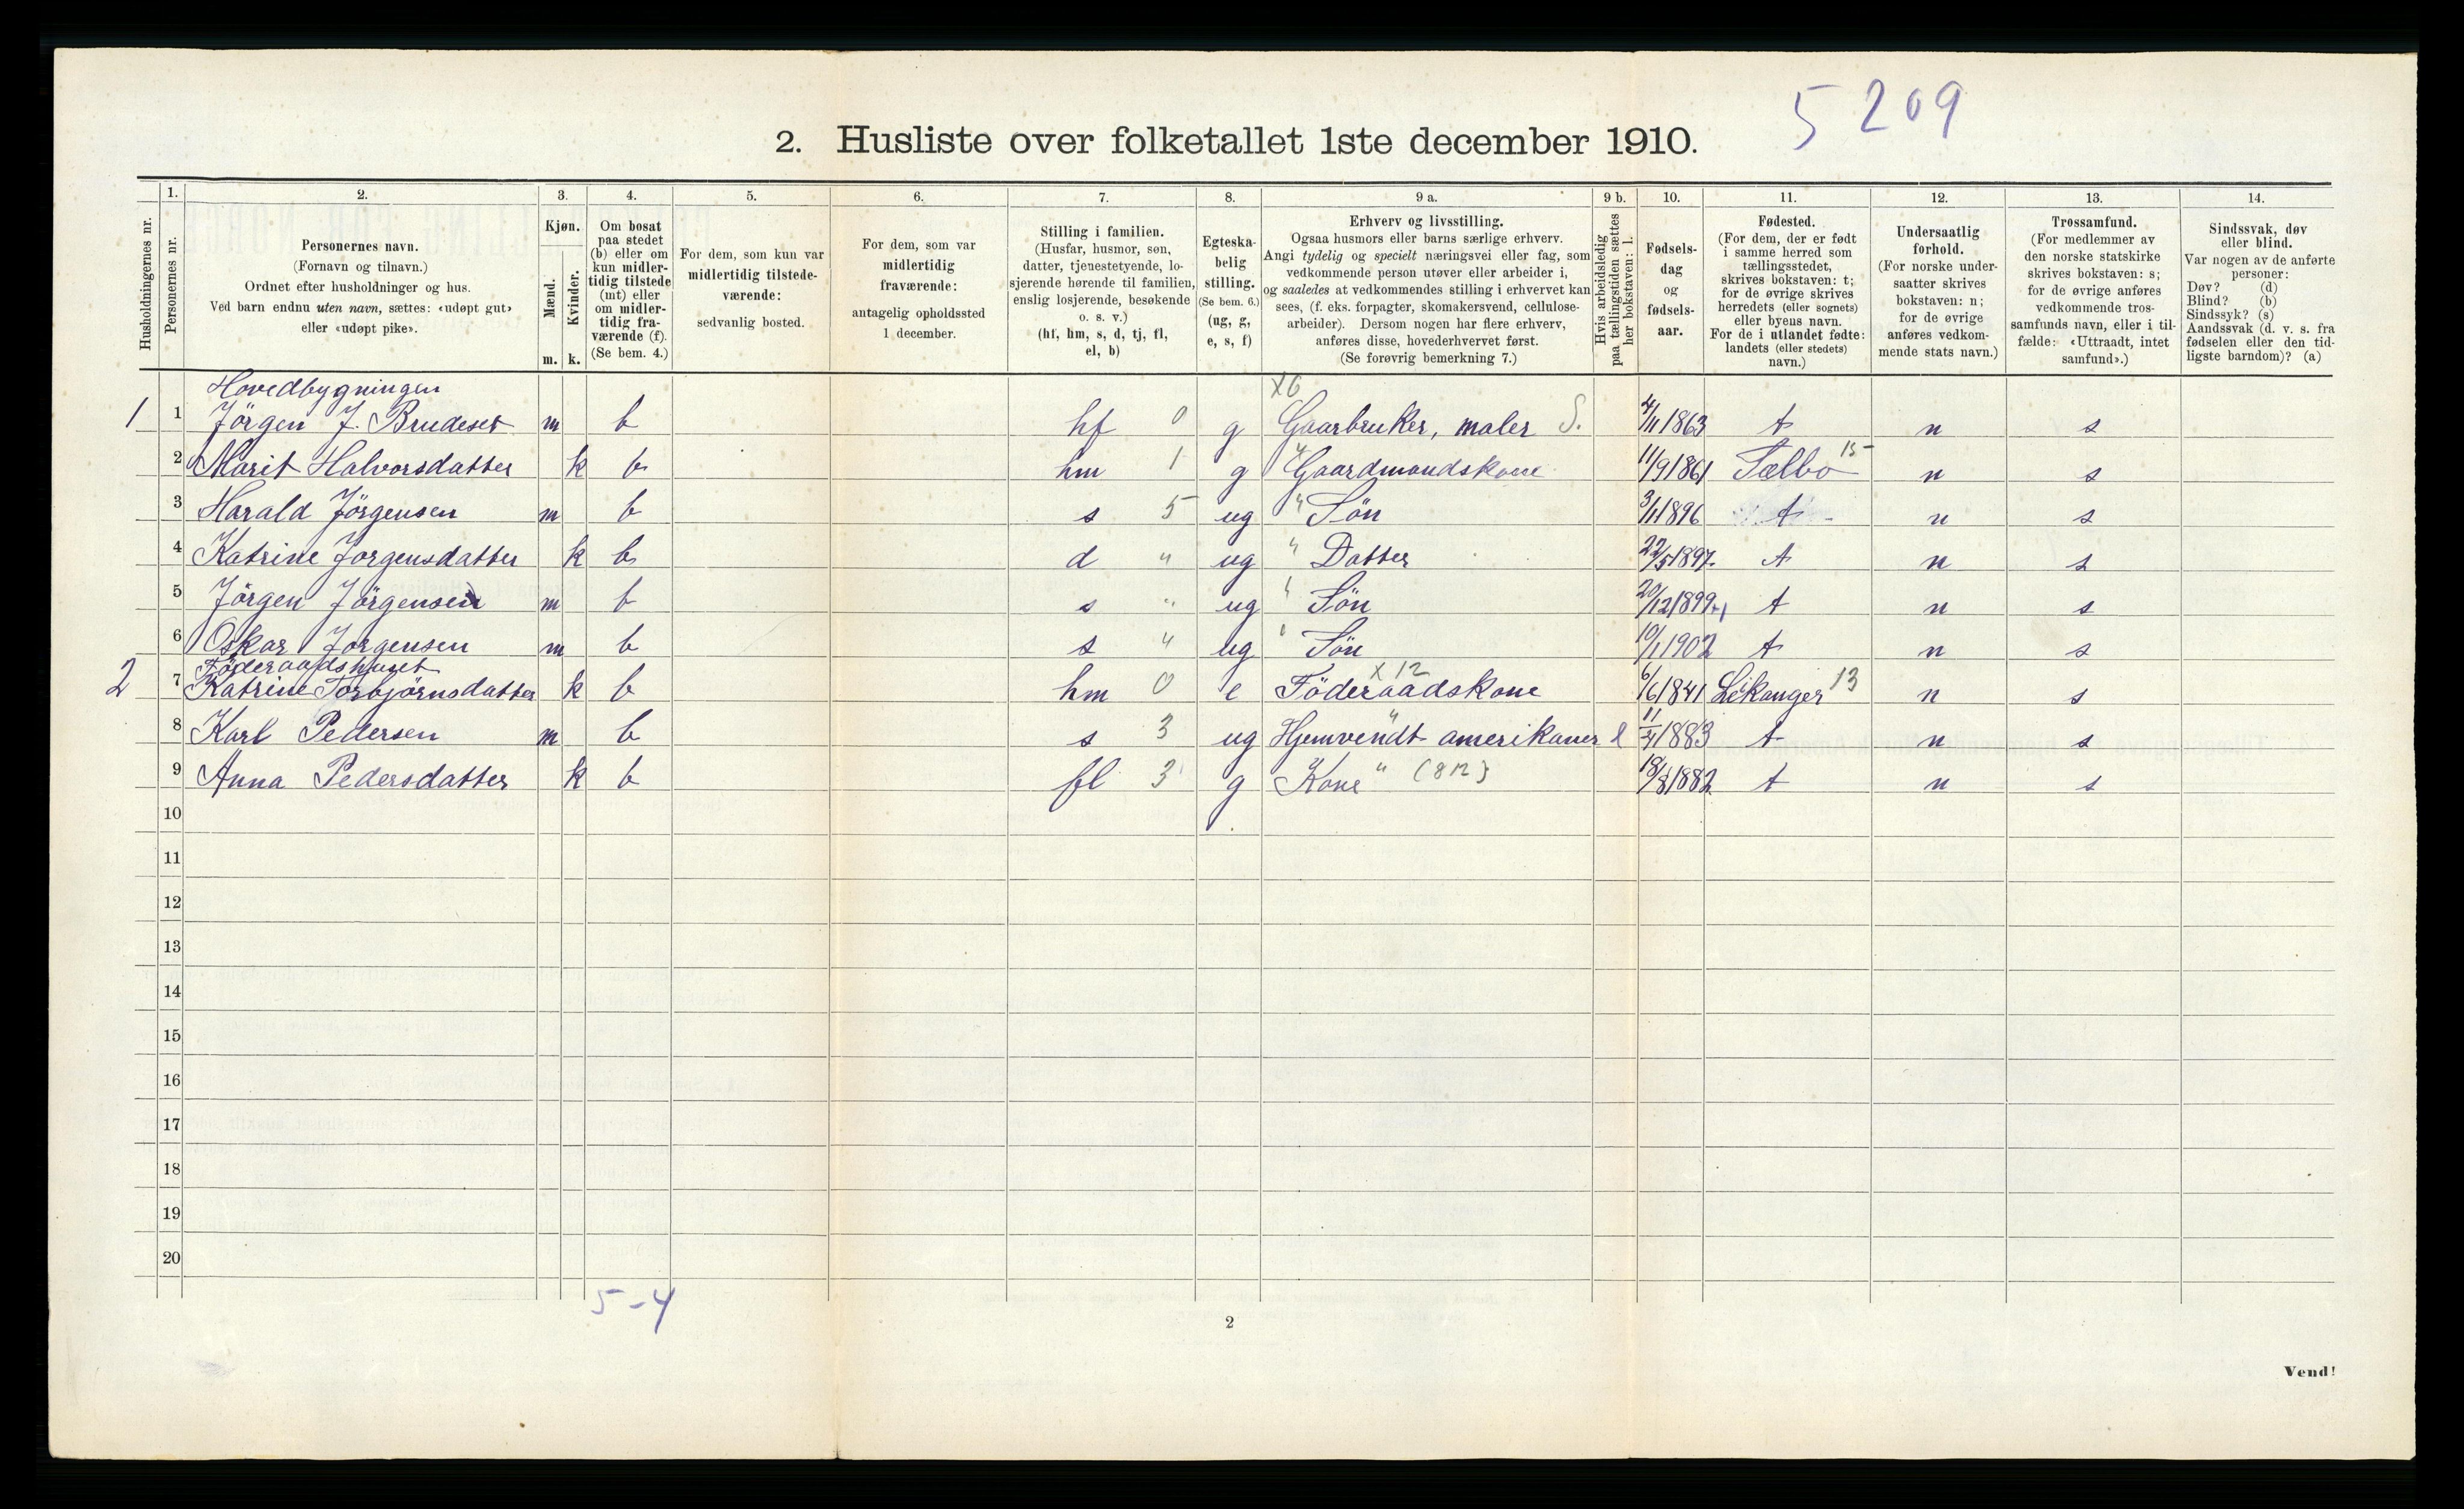 5 209
2. Husliste over folketallet 1ste december 1910.
Husholdningernes nr.
1.
Personernes nr.
2.
Personernes navn.
(Fornavn og tilnavn.)
Ordnet efter husholdninger og hus.
Ved barn endnu uten navn, sættes: «udøpt gut»
eller «udøpt pike».
3.
Kjøn.
Mænd.
Kvinder.
m. k.
4.
Om bosat
paa stedet
(b) eller om
kun midler-
tidig tilstede
(mt) eller
om midler-
tidig fra-
værende (f).
(Se bem. 4.)
5.
For dem, som kun var
midlertidig tilstede-
værende:
sedvanlig bosted.
6.
For dem, som var
midlertidig
fraværende:
antagelig opholdssted
1 december.
7.
Stilling i familien.
(Husfar, husmor, søn,
datter, tjenestetyende, lo-
sjerende hørende til familien,
enslig losjerende, besøkende
o. s. v.)
(hf, hm, s, d, tj, fl,
el, b)
8.
Egteska-
belig
stilling.
(Se bem. 6.)
(ug, g,
e, s, f)
9 a.
Erhverv og livsstilling.
Ogsaa husmors eller barns særlige erhverv.
Angi tydelig og specielt næringsvei eller fag, som
vedkommende person utøver eller arbeider i,
og saaledes at vedkommendes stilling i erhvervet kan
sees, (f. eks. forpagter, skomakersvend, cellulose-
arbeider). Dersom nogen har flere erhverv,
anføres disse, hovederhvervet først.
(Se forøvrig bemerkning 7.)
9 b.
Hvis arbeidsledig
paa tællingstiden sættes
her bokstaven: l.
10.
Fødsels-
dag
og
fødsels-
aar.
11.
Fødested.
(For dem, der er født
i samme herred som
tællingsstedet,
skrives bokstaven: t;
for de øvrige skrives
herredets (eller sognets)
eller byens navn.
For de i utlandet fødte:
landets (eller stedets)
navn.)
12.
Undersaatlig
forhold.
(For norske under-
saatter skrives
bokstaven: n;
for de øvrige
anføres vedkom-
mende stats navn.)
13.
Trossamfund.
(For medlemmer av
den norske statskirke
skrives bokstaven: s;
for de øvrige anføres
vedkommende tros-
samfunds navn, eller i til-
fælde: «Uttraadt, intet
samfund».)
14.
Sindssvak, døv
eller blind.
Var nogen av de anførte
personer:
Døv? (d)
Blind? (b)
Sindssyk? (s)
Aandssvak (d. v. s. fra
fødselen eller den tid-
ligste barndom)? (a)
Hovedbygningen x6
1 1 Jörgen J. Brudeset m b hf 0 g Gaarbruker, maler S. 4/11 1863 t n s
2 Marit Halvorsdatter k b hm 1 g " Gaardmandskone 11/9 1861 Tælbo 15 n s
3 Harald Jörgensen m b s 5 ug " Sön 3/1 1896 t n s
4 Katrine Jorgensdatter k b d " ug " Datter 22/5 1897 t n s
5 Jörgen Jörgensen m b s " ug " Sön 20/12 1899 t n s
6 Oskar Jorgensen m b s " ug " Sön 10/1 1902 t n s
Föderaadshuset x 12
2 7 Katrine Torbjörnsdatter k b hm 0 e Föderaadskone 6/6 1841 Lekanger 13 n s
8 Karl Pedersen m b s 3 ug Hjemvendt amerikaner l 11/4 1883 t n s
9 Anna Pedersdatter k b fl 3 g Kone " (812) 18/8 1882 t n s
10
11
12
13
14
15
16
17
18
19
20
5-4
2
Vend!